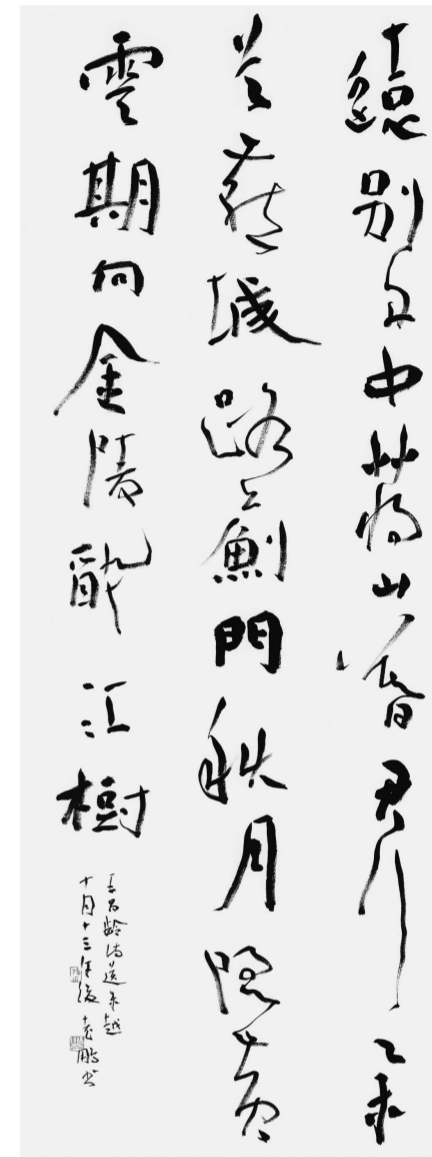 遠別舟中蔣山暮君行舉
首燕城路薊門秋月隱黄
雲期向金陵醉江樹
王昌齡詩送朱越
十月十三 鵬书